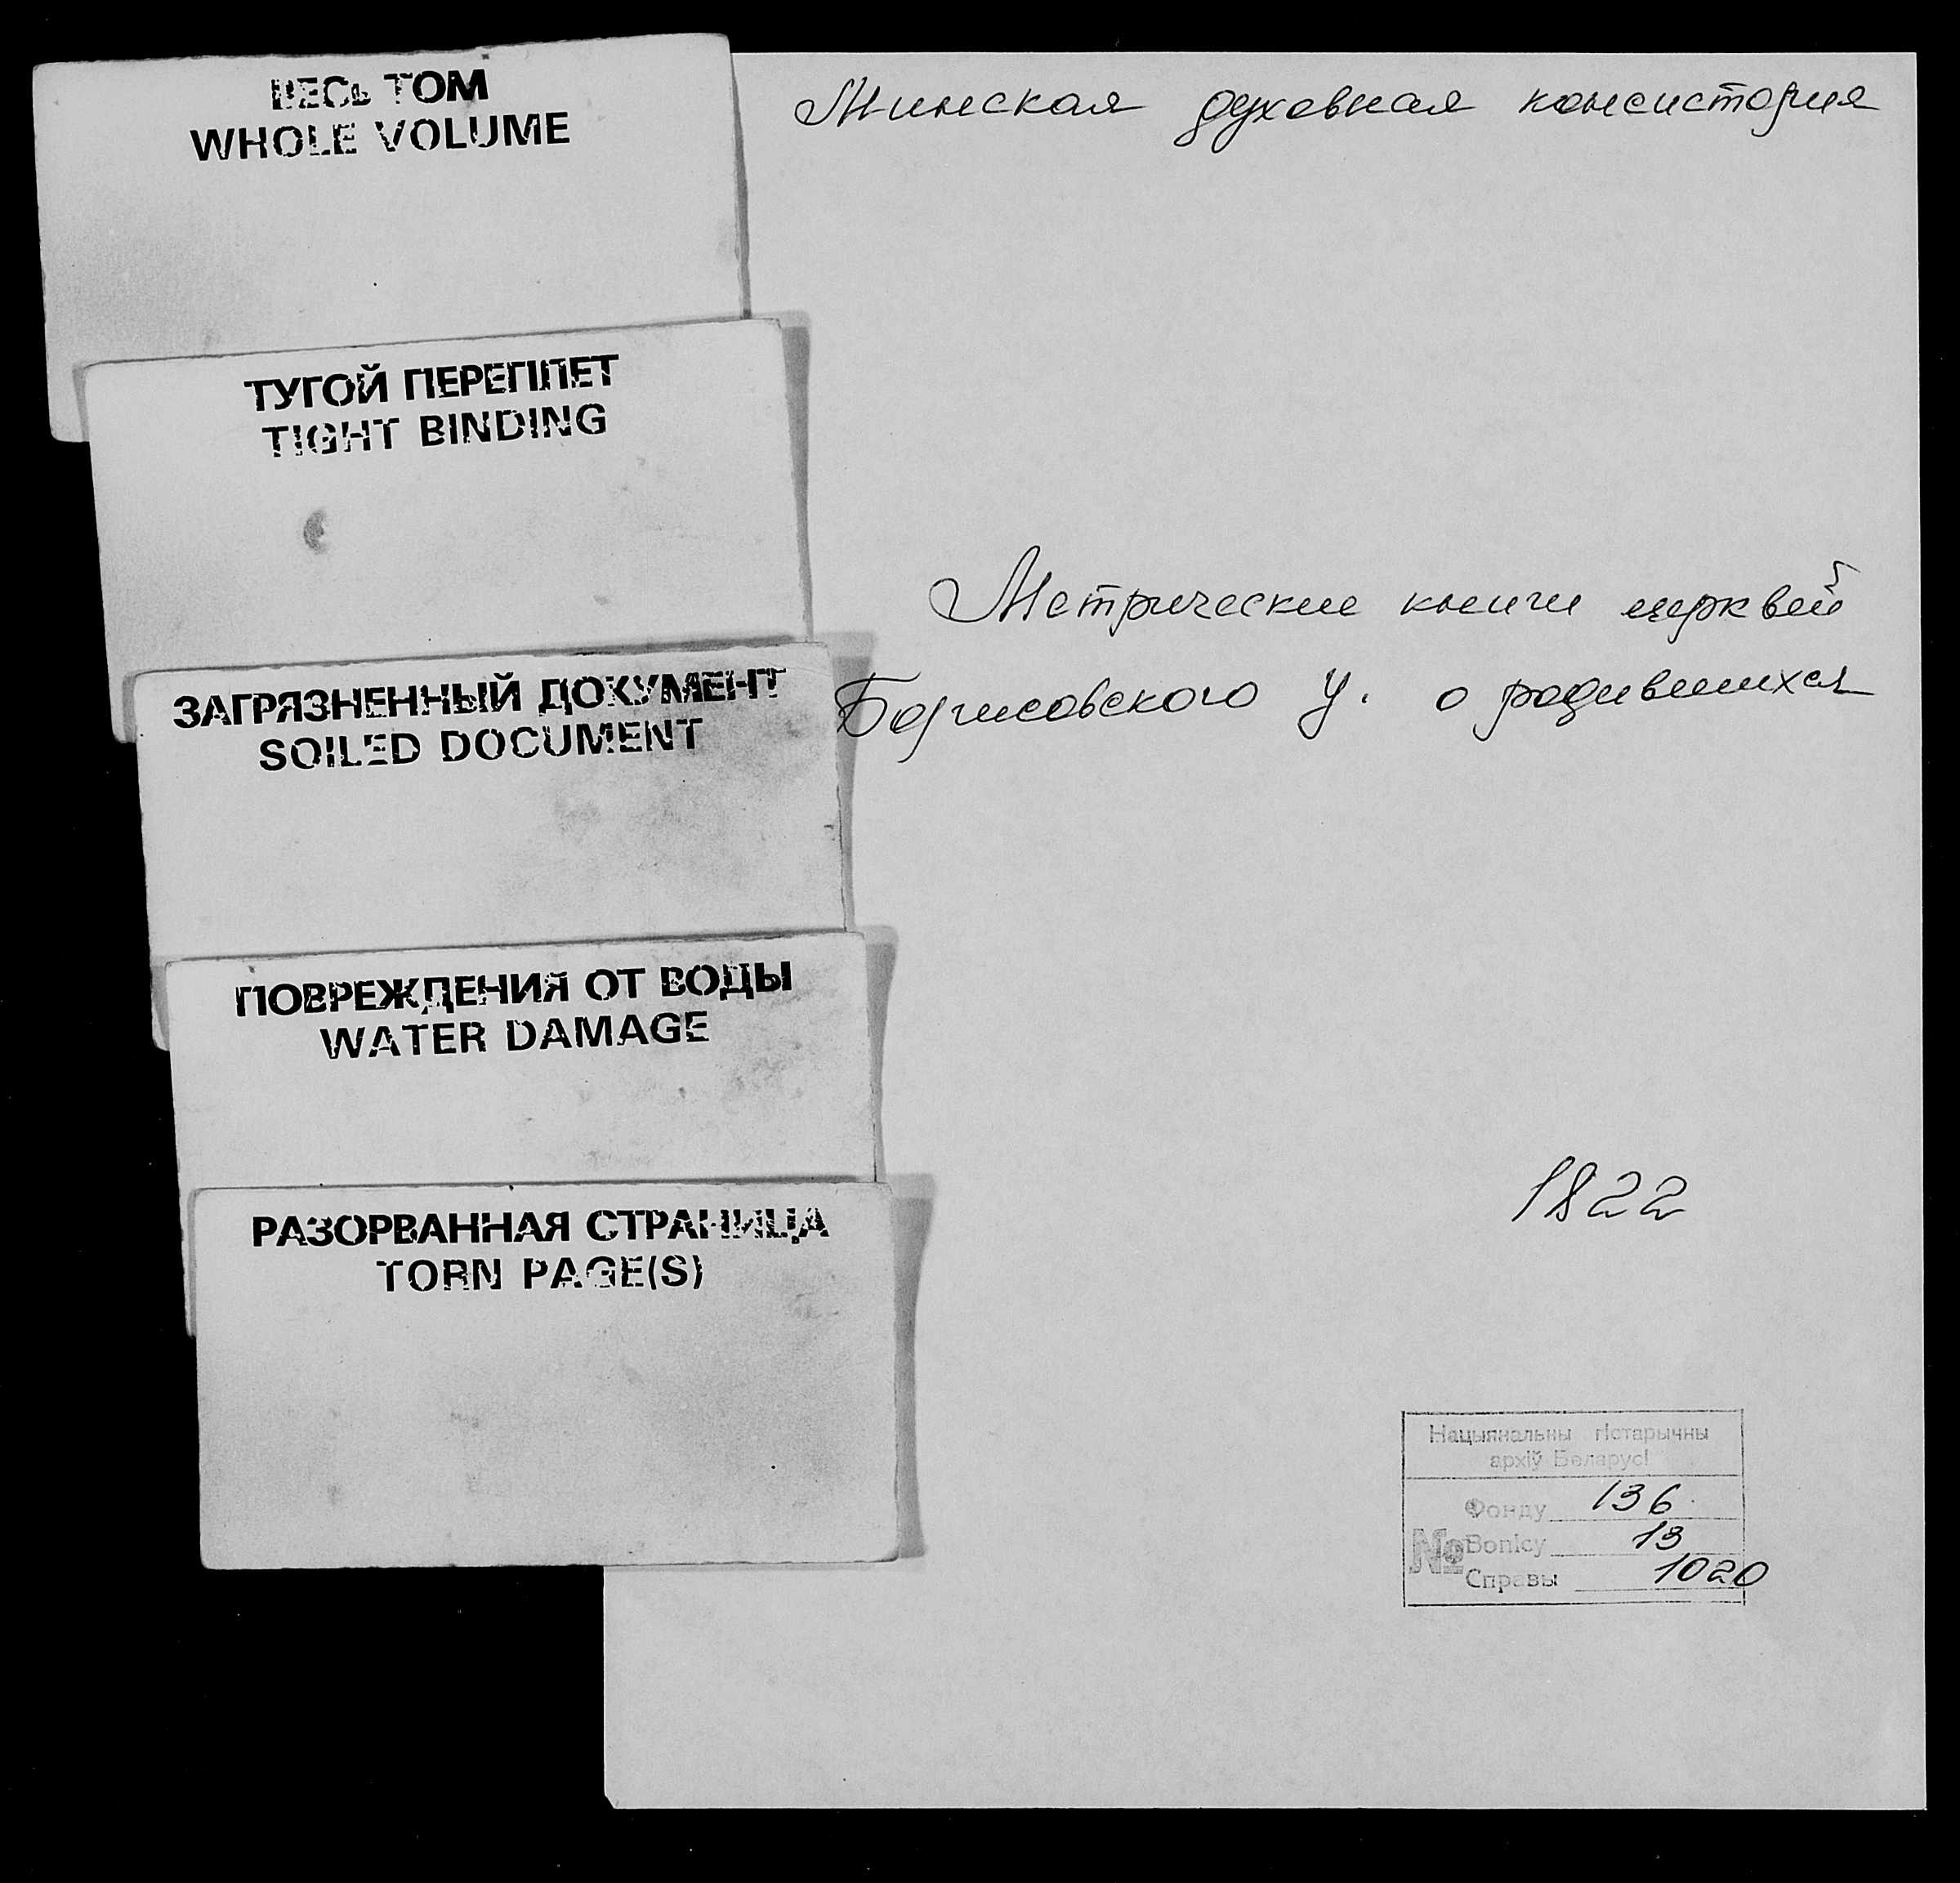 ВЕСЬ ТОМ
WHOLE VOLUME
ТУГОЙ ПЕРЕПЛЕТ
TIGHT BINDING
ЗАГРЯЗНЕННЫЙ ДОКУМЕНТ
SOILED DOCUMENT
ПОВРЕЖДЕНИЯ ОТ ВОДЫ
WATER DAMAGE
РАЗОРВАННАЯ СТРАНИЦА
TORN PAGE(S)
Минская духовная консистория
Метрические книги церквей
Борисовского у. о родившихся
1822
Нацыянальны гістарычны
архіў Беларусі
Фонду 136
№ Вопісу 13
Справы 1020